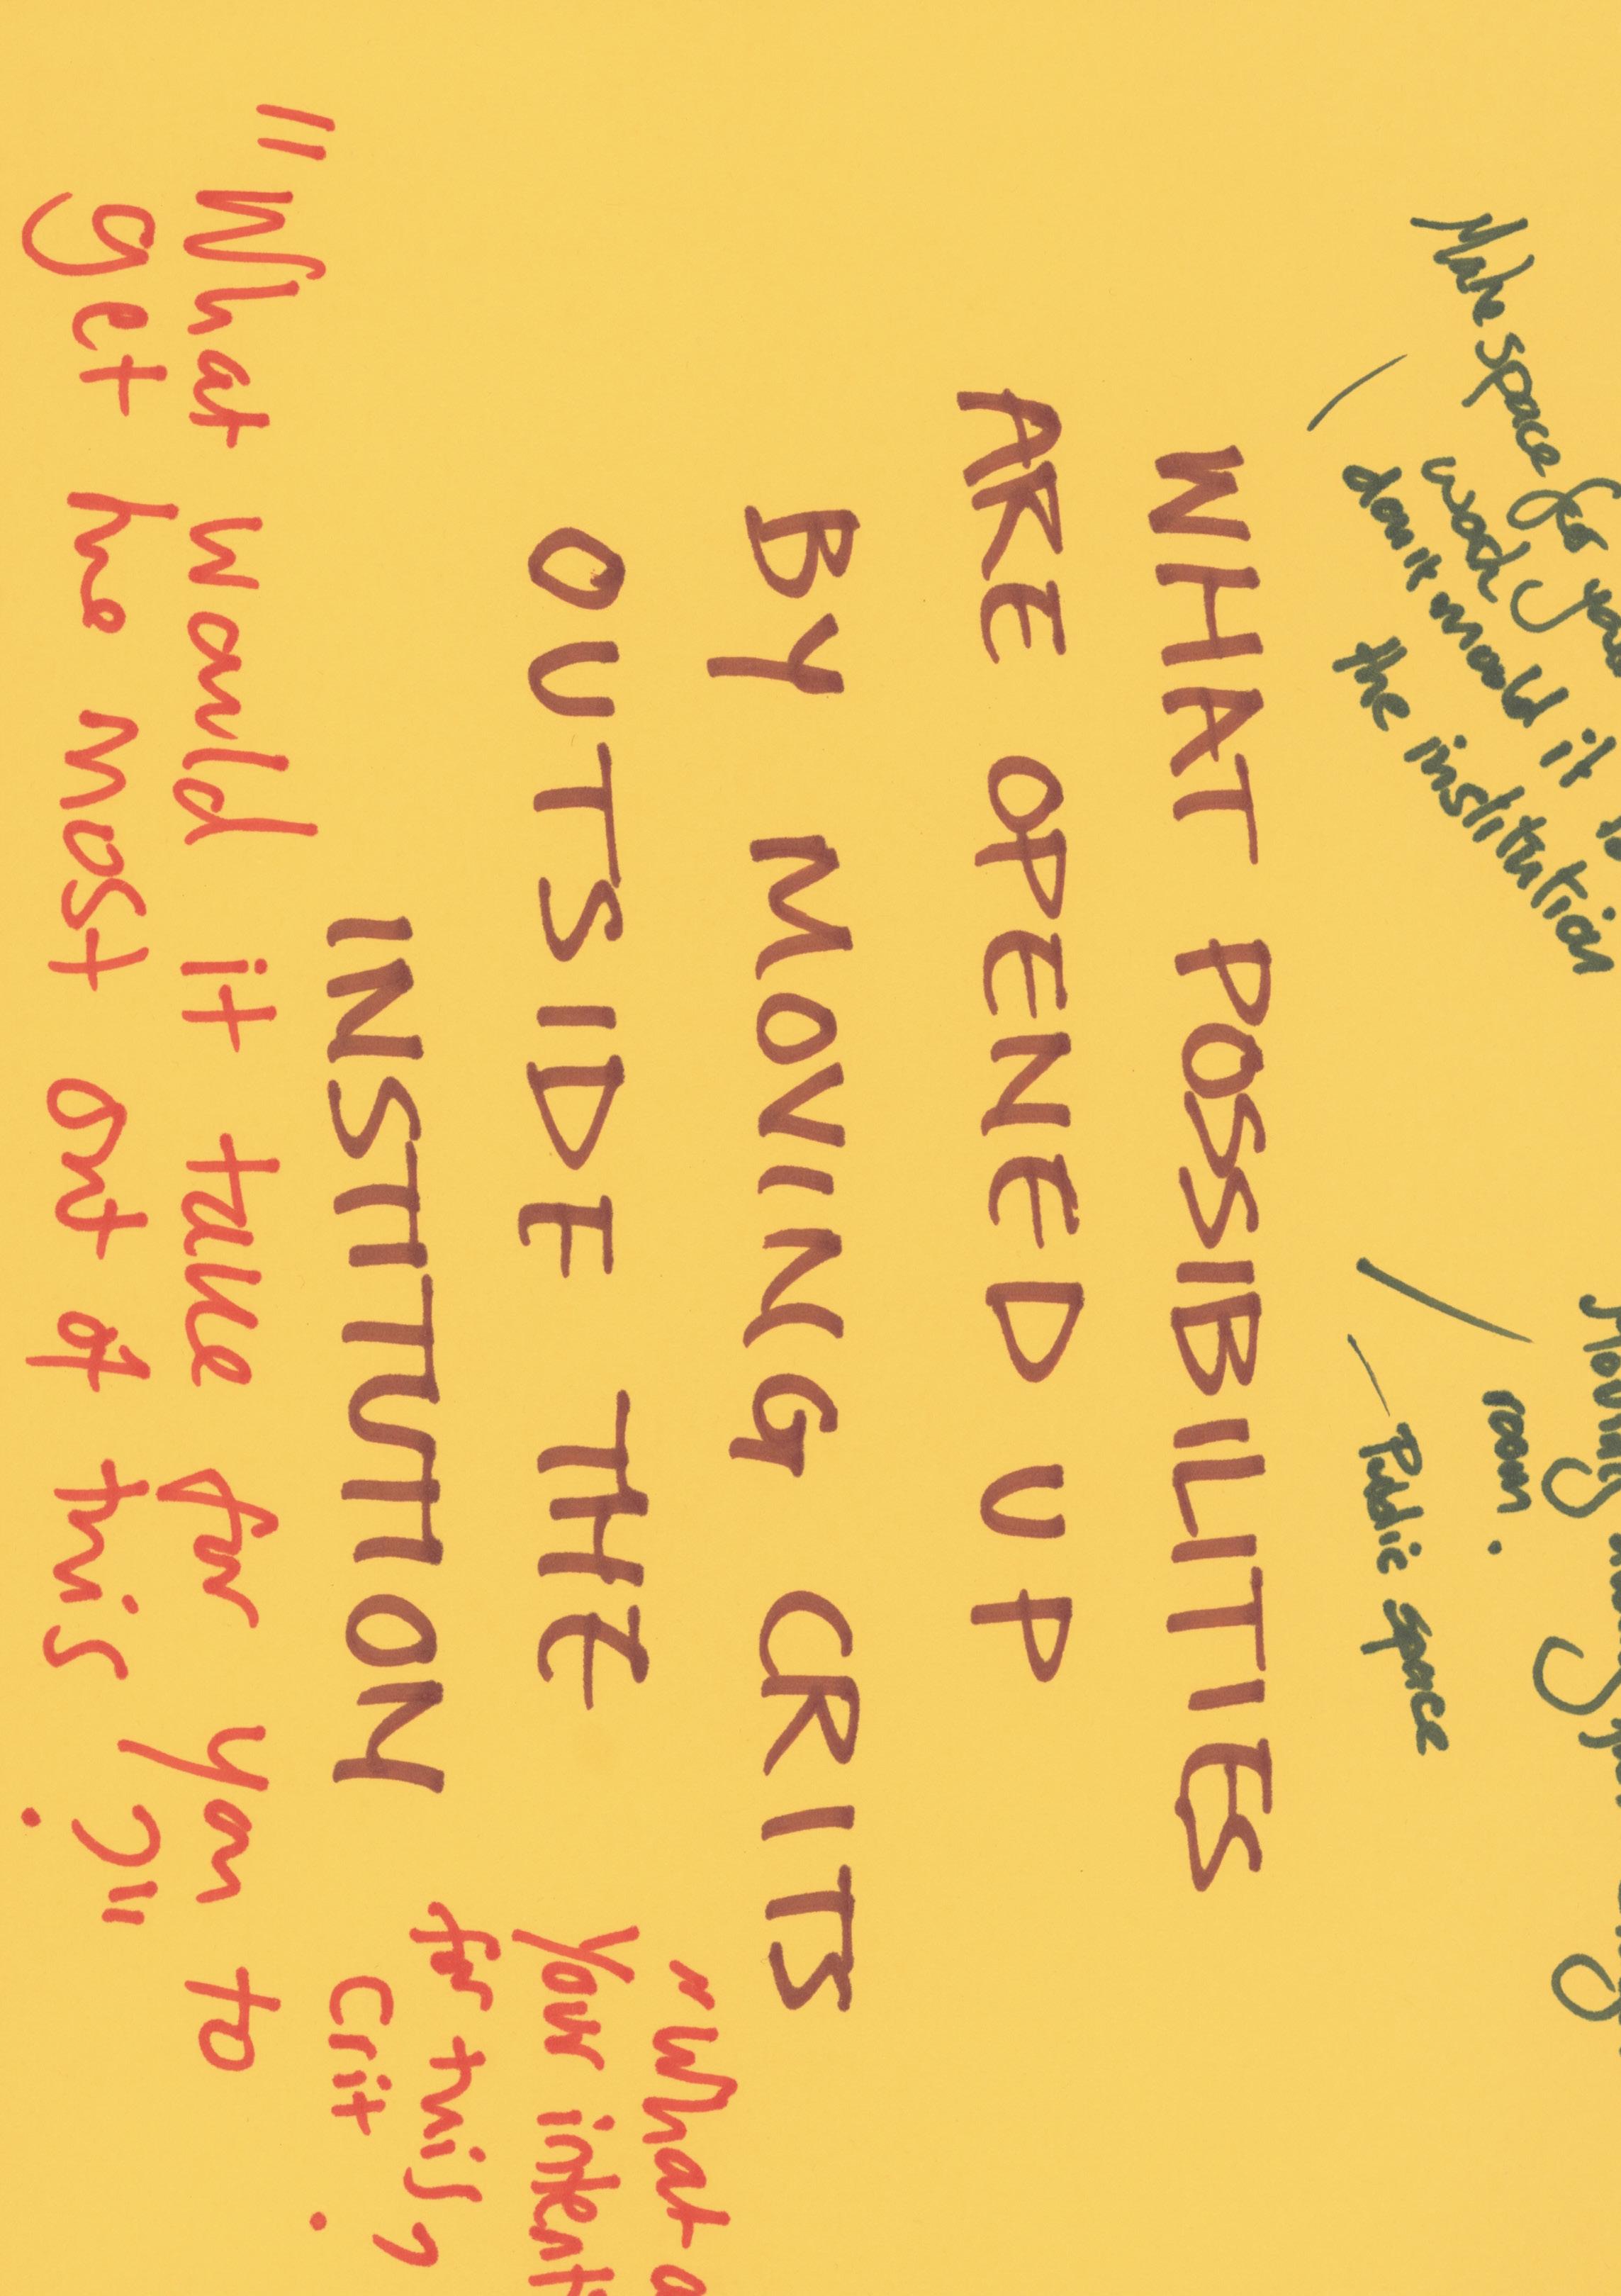 Make space for you
work
don't mould it to
the institution
room.
Public space
WHAT POSSIBILITIES
ARE OPENED UP
BY MOVING CRITS
OUTSIDE THE
INSTITUTION
"What
your intent
for this
crit?
"What would it take for you to
get he most out of this?"